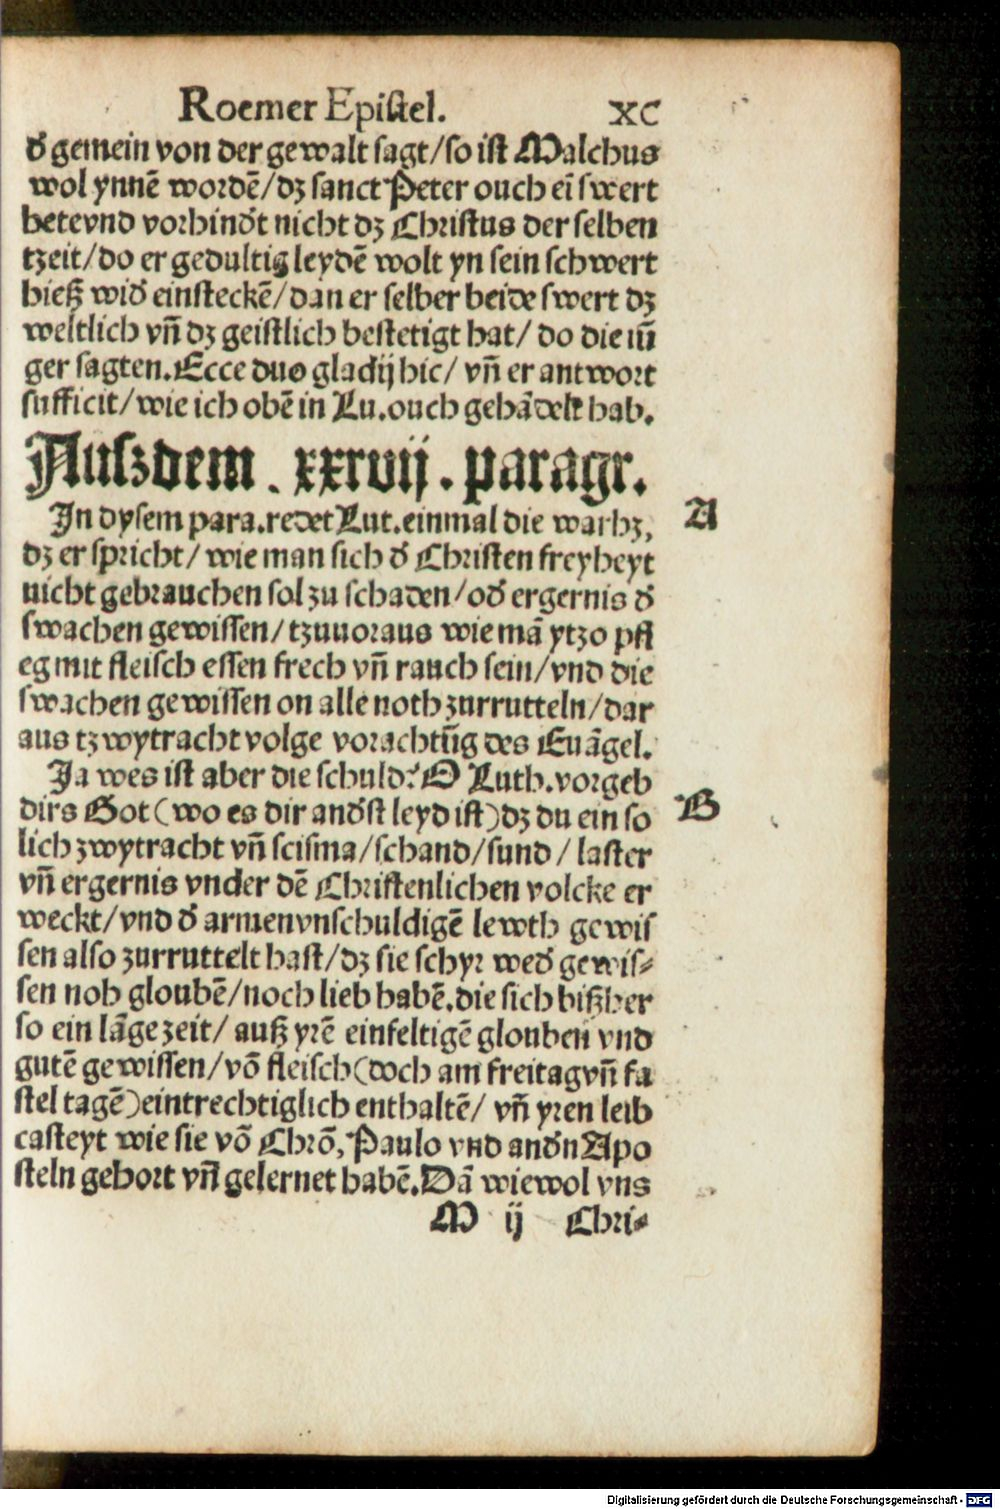 Roemer Epistel. XC
d̕ gemein von der gewalt sagt/so ist Malchus
wol ynnē wordē/dz sanct Peter ouch eī swert
hetevnd vorhind̕t nicht dz Christus der selben
tzeit/do er gedultig leydē wolt yn sein schwert
hieß wid̕ einsteckē/dan er selber beide swert dz
weltlich vn̄ dz geistlich bestetigt hat/ do die iū
ger sagten.Ecce duo gladij hic/ vn̄ er antwort
sufficit/wie ich obē in Lu.ouch gehādelt hab.
Auszdem . xxxvij . paragr.
In dysem para.redet Lut.einmal die warhz,
A
dz er spricht/ wie man sich d̕ Christen freyheyt
nicht gebrauchen sol zu schaden/od̕ ergernis d̕
swachen gewissen/tzuuoraus wie mā ytzo pfl
eg mit fleisch essen frech vn̄ rauch sein/vnd die
swachen gewissen on alle noth zurrutteln/dar
aus tzwytracht volge vorachtūg des Euāgel.
Ja wes ist aber die schuld? O Luth.vorgeb
dirs Got(wo es dir and̕st leyd ist)dz du ein so
B
lich zwytracht vn̄ scisma/schand/sund / laster
vn̄ ergernis vnder dē Christenlichen volcke er
weckt/vnd d̕ armenvnschuldigē lewth gewis
sen also zurruttelt hast/dz sie schyr wed̕ gewis⸗
sen noh gloubē/noch lieb habē.die sich bißher
so ein lāge zeit/ auß yrē einfeltigē glouben vnd
gutē gewissen/vō fleisch(doch am freitagvn̄ fa
stel tagē)eintrechtiglich enthaltē/ vn̄ yren leib
casteyt wie sie vō Chrō, Paulo vnd and̕n Apo
steln gehort vn̄ gelernet habē.Dā wiewol vns
M ij Chri⸗
Digitalisierung gefördert durch die Deutsche Forschungsgemeinschaft - DFG